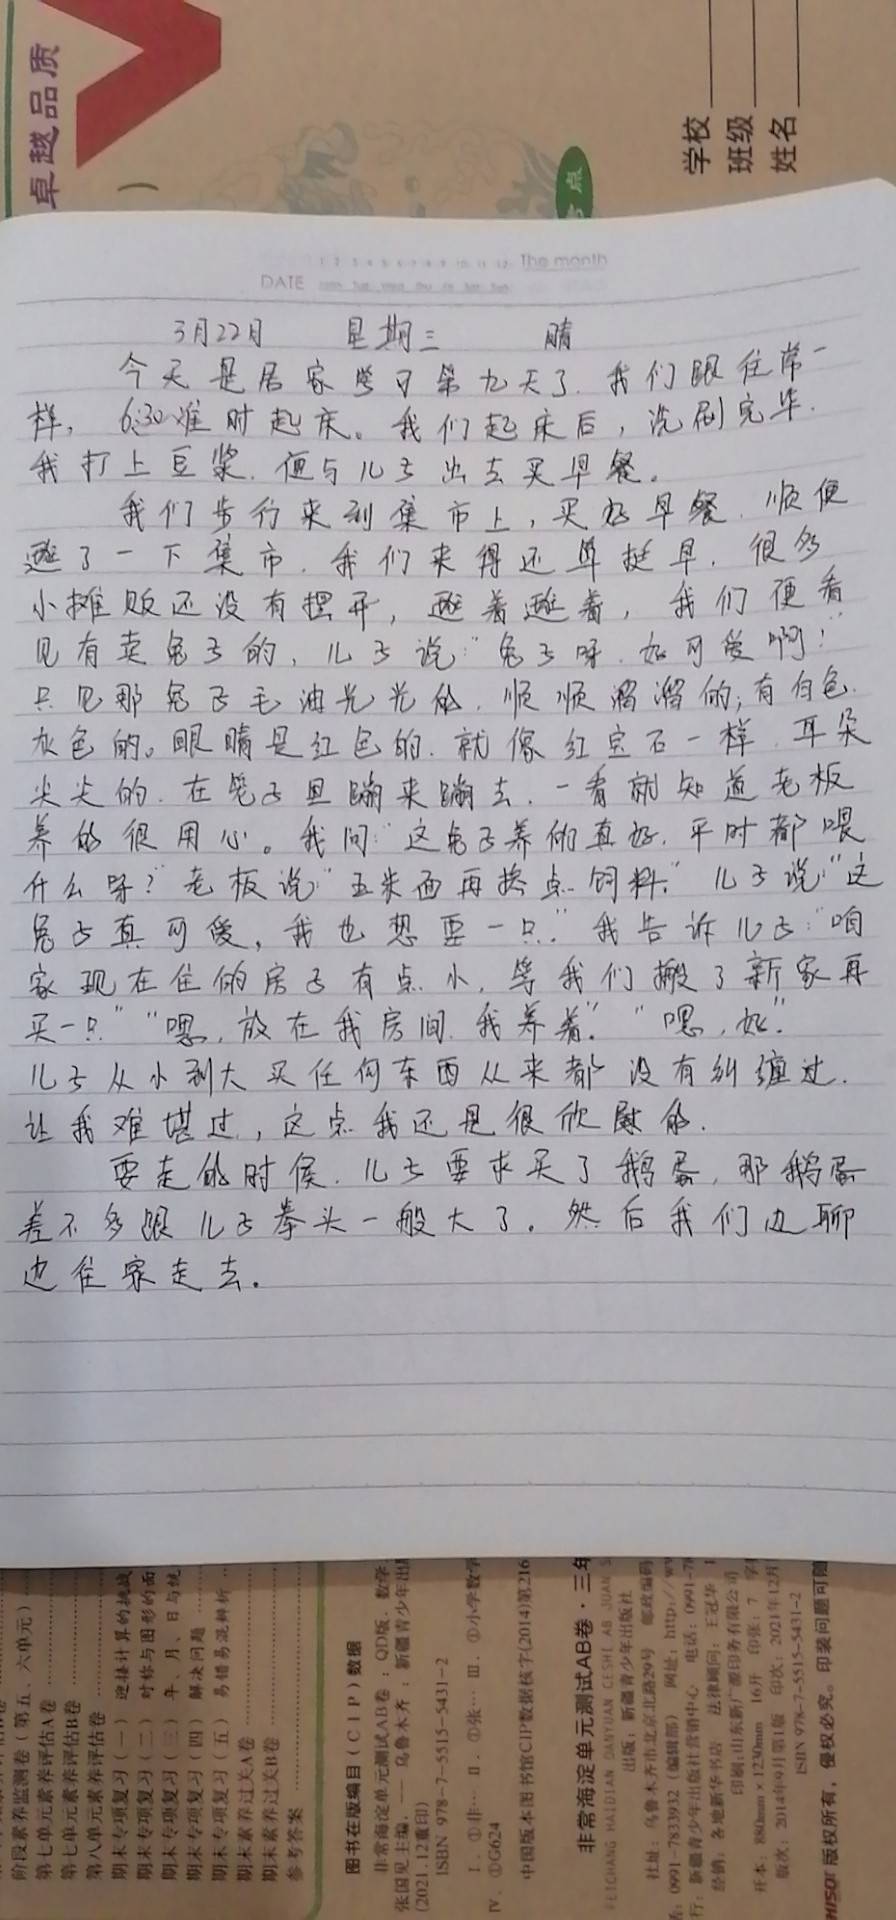 卓越品质
学校
班级
姓名
点
The month
DATE
3月22日 星期三 晴
今天是居家学习第九天了.我们跟往常一
样，6:30准时起床。我们起床后，洗刷完毕.
我打上豆浆.便与儿子出去买早餐。
我们步行来到集市上，买好早餐.顺便
逛了一下集市.我们来得还算挺早.很多
小摊贩还没有摆开，逛着逛着，我们便看
见有卖兔子的，儿子说：“兔子呀.好可爱啊！”
只见那兔子毛油光光的.顺顺溜溜的；有白色.
灰色的。眼睛是红色的.就像红宝石一样.耳朵
尖尖的.在笼子里蹦来蹦去.一看就知道老板
养的很用心。我问：“这兔子养的真好.平时都喂
什么呀？”老板说“玉米面再掺点饲料.”儿子说“这
兔子真可爱，我也想要一只.”我告诉儿子：“咱
家现在住的房子有点小，等我们搬了新家再
买一只”“嗯，放在我房间.我养着”.“嗯，好”.
儿子从小到大买任何东西从来都没有纠缠过.
让我难堪过，这点我还是很欣慰的.
要走的时候.儿子要求买了鹅蛋，那鹅蛋
差不多跟儿子拳头一般大了.然后我们边聊
边往家走去。
阶段素养监测卷（第五、六单元）
第七单元素养评估A卷
第七单元素养评估B卷
第八单元素养评估卷
期末专项复习（一） 迎接计算的挑战
期末专项复习（二） 对称与图形的面
期末专项复习（三） 年、月、日与统
期末专项复习（四） 解决问题
期末专项复习（五） 易错易混辨析
期末素养过关A卷
期末素养过关B卷
参考答案
图书在版编目（CIP）数据
非常海淀单元测试AB卷：QD版.数学
张国见主编.—乌鲁木齐：新疆青少年出版
(2021.12重印)
ISBN 978-7-5515-5431-2
Ⅰ.①非… Ⅱ.①张… Ⅲ.①小学数学
Ⅳ.①G624
中国版本图书馆CIP数据核字(2014)第216
非常海淀单元测试AB卷·三年
FEICHANG HAIDIAN DANYUAN CESHI AB JUAN S
出版：新疆青少年出版社
社址：乌鲁木齐市北京北路29号 邮政编码
0991-7833932（编辑部） 网址：http://ww
行：新疆青少年出版社营销中心 电话：0991-78
经销：各地新华书店 法律顾问：王冠华
印刷：山东新广源印务有限公司
开本：880mm×1230mm 16开 印张：7
版次：2014年9月第1版 印次：2021年12月
ISBN 978-7-5515-5431-2
版权所有，侵权必究。印装问题可随